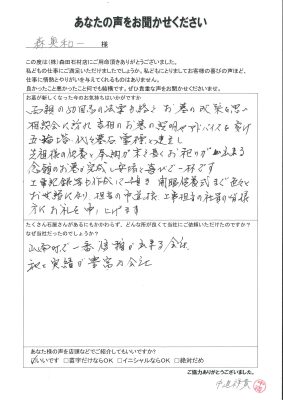 あなたの声をお聞かせください
森奥和一 様
この度は(株)森田石材店にご用命頂きありがとうございました。
私どもの仕事にご満足いただけましたでしょうか。私どもとりましてお客様の喜びの声ほど、
仕事に情熱とやりがいを与えてくれるものはありません。
良かったこと悪かったこと何でも結構です。ぜひ貴重な声をお聞かせくださいませ。
お墓が新しくなった今のお気持ちはいかがですか
の50回忌の法要を終え お墓の改築を思い
相談会に訪れ 真相のお墓の説明 アドバイスを受け
五輪塔 代々墓石 霊標と建立し
先祖様の供養と 末永く お祀りが出来る
念願のお墓が完成し 安堵と喜びで一杯です
工事記録等も作成して頂き 開眼供養式まで色々と
お世話になり 担当の 工事担当の社員の皆様
方にお礼を申し上げます
たくさん石屋さんがあるにもかかわらず、どんな所が良くて当社にご依頼いただけたのですか?
なぜ当社だったのでしょうか?
山南町で一番信頼が出来る会社
実績が豊富な会社
あなた様の声を店頭などでご紹介してもいいですか?
☑いいです □苗字だけならOK □イニシャルならOK □絶対だめ
ご協力ありがとうございました。